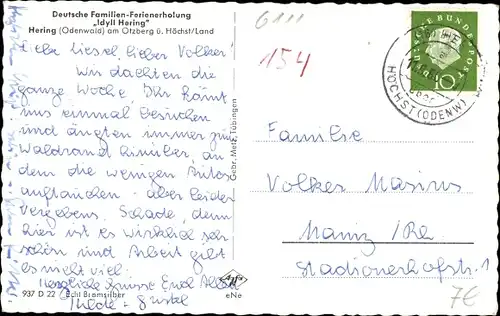 Deutsche Familien-Ferienerholung
„Idyll Hering"
Hering (Odenwald) am Otzberg ü. Höchst/Land
Liebe Liesel, lieber Volker!
Wir dachten die
ganze Woche Ihr könnt
uns einmal besuchen
und äugten immer zum
Waldrand hinüber, an
dem die wenigen Autos
auftauchen - aber leider
vergebens. Schade, denn
hier ist es wirklich sehr
schön und Arbeit gibt
es nicht viel.
Herzliche Grüsse Euch Allen
937 D 22 Echt Bromsilber
Gebr. Metz, Tübingen
eNe
6111
154
DEUTSCHE BUNDESPOST
10
HÖCHST (ODENW)
Familie
Volker
Mainz/Rh.
1
7€